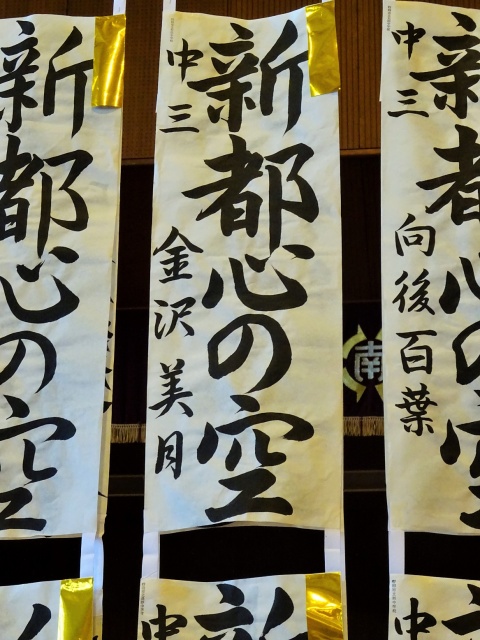 向後百葉
中三
新都心の空
中三
金沢美月
新都心の空
南
中
新
中
新